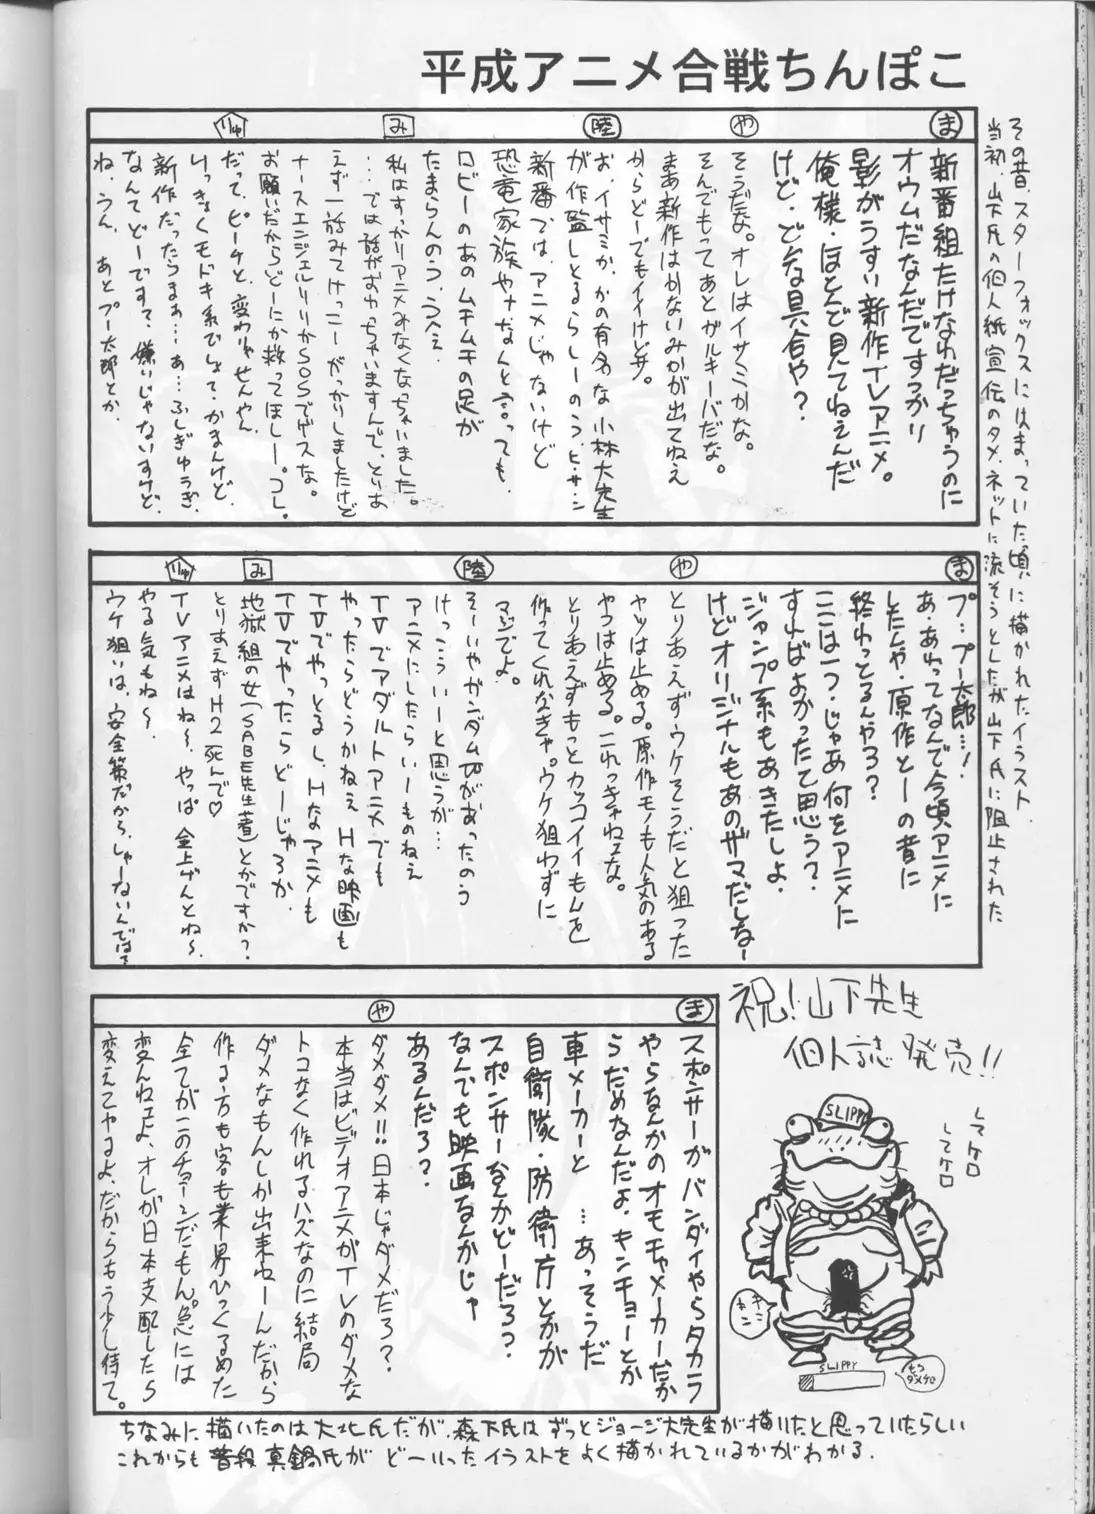 平成アニメ合戦ちんぽこ
その昔、スターフォックスにはまっていた頃に描かれたイラスト
当初、山下氏の個人紙宣伝のタメ、ネットに流そうとしたが山下氏に阻止された
ま
新番組たけなわだっちゅうのに
オウムだなんだですっかり
影がうすい新作TVアニメ。
俺様・ほとんど見てねぇんだ
けど・どんな具合や？
や
そうだな。オレはイサミかな。
そんでもってあとガルキーバだな。
まあ新作はかないみかが出てねえ
からどーでもイイけどサ。
陸
お、イサミか、かの有名な小林大先生
が作監しとるらしーのう、ヒサシ
新番では、アニメじゃないけど
恐竜家族やナなんと言っても、
ロビーのあのムチムチの足が
たまらんのう、ううへぇ
み
私はすっかりアニメみなくなっちゃいました。
…では話がおわっちゃいますんで、とりあ
えず一話みてけっこーがっかりしましたけど
ナースエンジェルリリカSOSでゲスな。
お願いだからどーにか救ってほしー。コレ。
りゅ
だって、ピーチと、変わりゃせんやん
いっきょくモドキ系でしょて・かまんけど、
新作だったらまぁ…あ…ふしぎゆうぎ、
なんてどーですて、嫌いじゃないすけど、
ね、うん、あとプー太郎とか、
ま
プ…プー太郎…！
あ・あわってなんで今頃アニメに
したんや・原作とーの昔に
終わっとるんやろ？
ここは一つ・じゃあ何をアニメに
すればよかったて思う？
ジャンプ系もあきたしよ、
けどオリジナルもあのザマだしなー
や
とりあえずウケそうだと狙った
ヤツは止める。原作モノも人気のある
やつは止める。これっきゃねェな。
とりあえずもっとカッコイイもんを
作ってくれなきゃ。ウケ狙わずに
マジでよ。
陸
そーいやガンダムWがあったのう
けっこういーと思うが…
アニメにしたらいーものねえ
TVでアダルトアニメでも
やったらどうかねえHな映画も
TVでやっとるし、Hなアニメも
TVでやったらどーじゃろか、
み
地獄組の女（SABE先生著）とかですか？
とりあえずH2死んで♡
りゅ
TVアニメはね〜、やっぱ金上げんとね〜、
やる気もね〜
ウケ狙いは、安全策だから、しゃーないんでは？
ま
スポンサーがバンダイやらタカラ
やらなんかのオモチャメーカーだか
らだめなんだよ、キンチョーとか
車メーカーと…あっそうだ
自衛隊・防衛庁とかが
スポンサーなんかどーだろ？
なんでも映画なんかじゃ
あるんだろ？
や
ダメダメ!!日本じゃダメだろ？
本当はビデオアニメがTVのダメな
トコなく作れるハズなのに結局
ダメなもんしか出来ねーんだから
作る方も客も業界ひっくるめた
全てがこのチョーシだもん。急には
変んねェよ、オレが日本支配したら
変えてやるよ、だからもう少し待て。
祝！山下先生
個人誌発売!!
SLIPPY
してケロ
してケロ
キンキン
SLIPPY
もうダメケロ
ちなみに描いたのは大北氏だが、森下氏はずっとジョージ大先生が描いたと思っていたらしい
これからも普段真鍋氏がどーいったイラストをよく描かれているかがわかる。